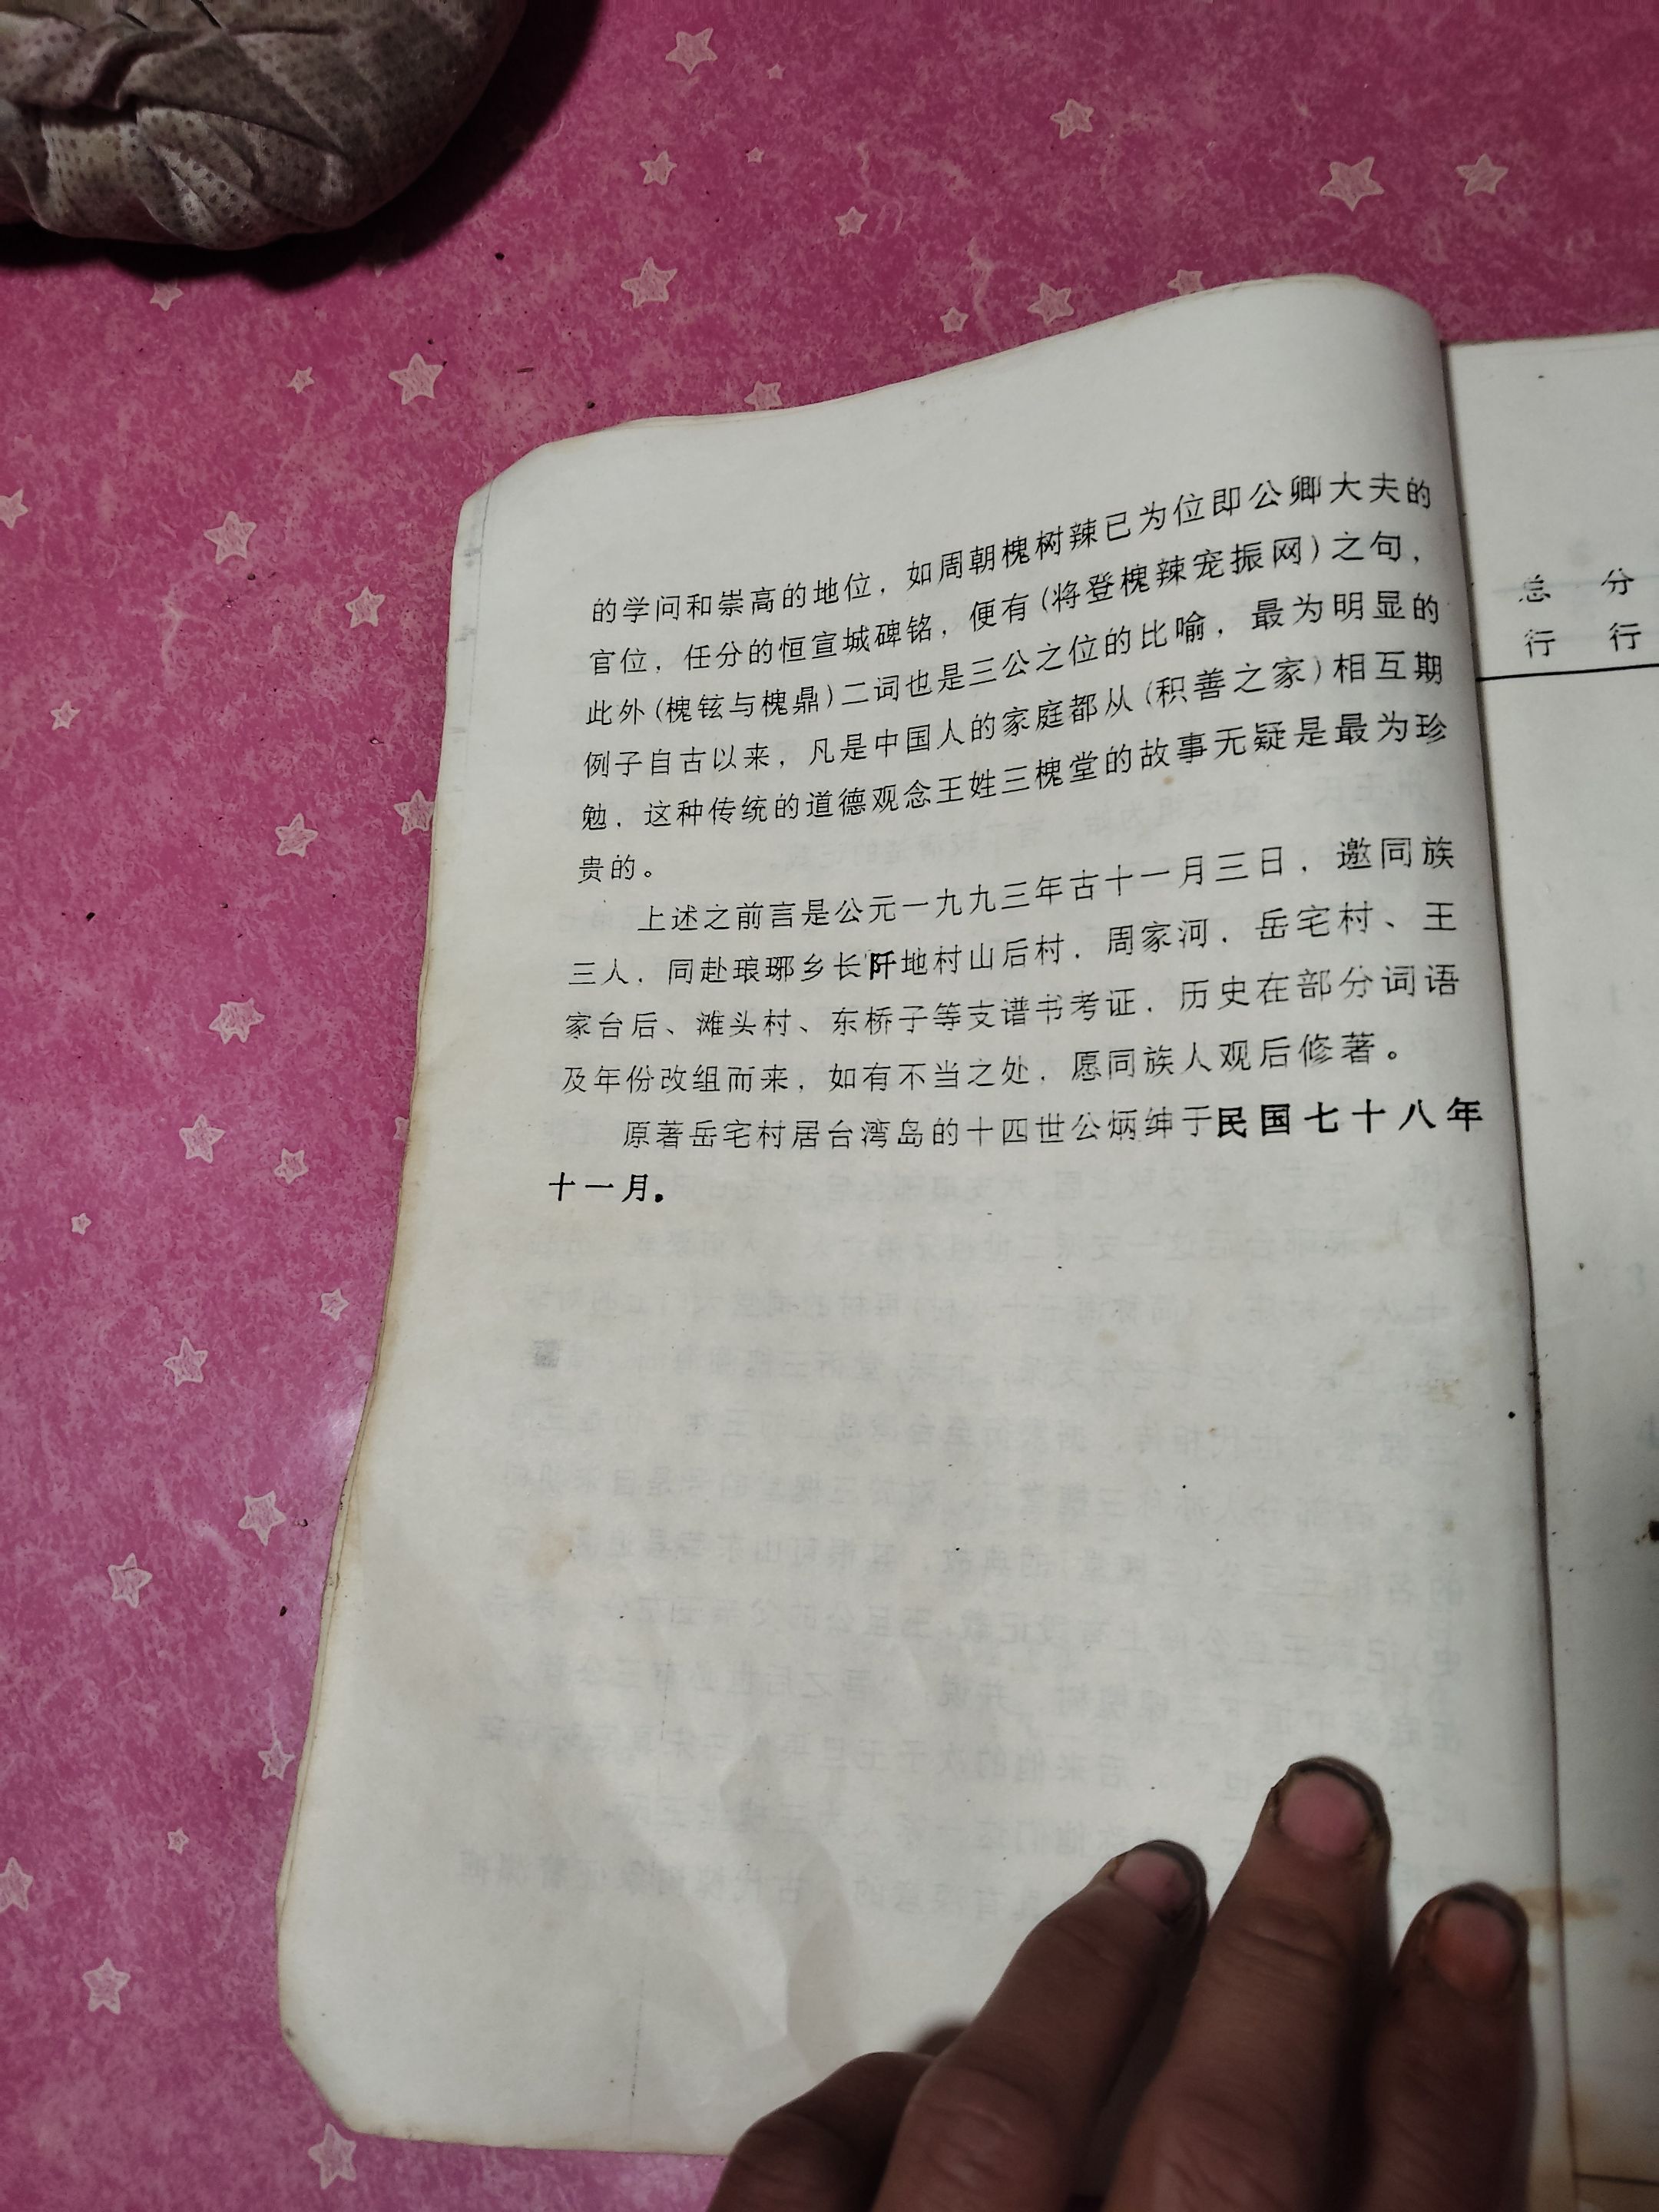 的学问和崇高的地位，如周朝槐树辣已为位即公卿大夫的
官位，任分的恒宣城碑铭，便有(将登槐辣宠振网)之句，
此外(槐铉与槐鼎)二词也是三公之位的比喻，最为明显的
例子自古以来，凡是中国人的家庭都从(积善之家)相互期
勉，这种传统的道德观念王姓三槐堂的故事无疑是最为珍
贵的。
上述之前言是公元一九九三年古十一月三日，邀同族
三人，同赴琅琊乡长阡地村山后村，周家河，岳宅村、王
家台后、滩头村、东桥子等支谱书考证，历史在部分词语
及年份改组而来，如有不当之处，愿同族人观后修著。
原著岳宅村居台湾岛的十四世公炳绅于民国七十八年
十一月。
总 分
行 行